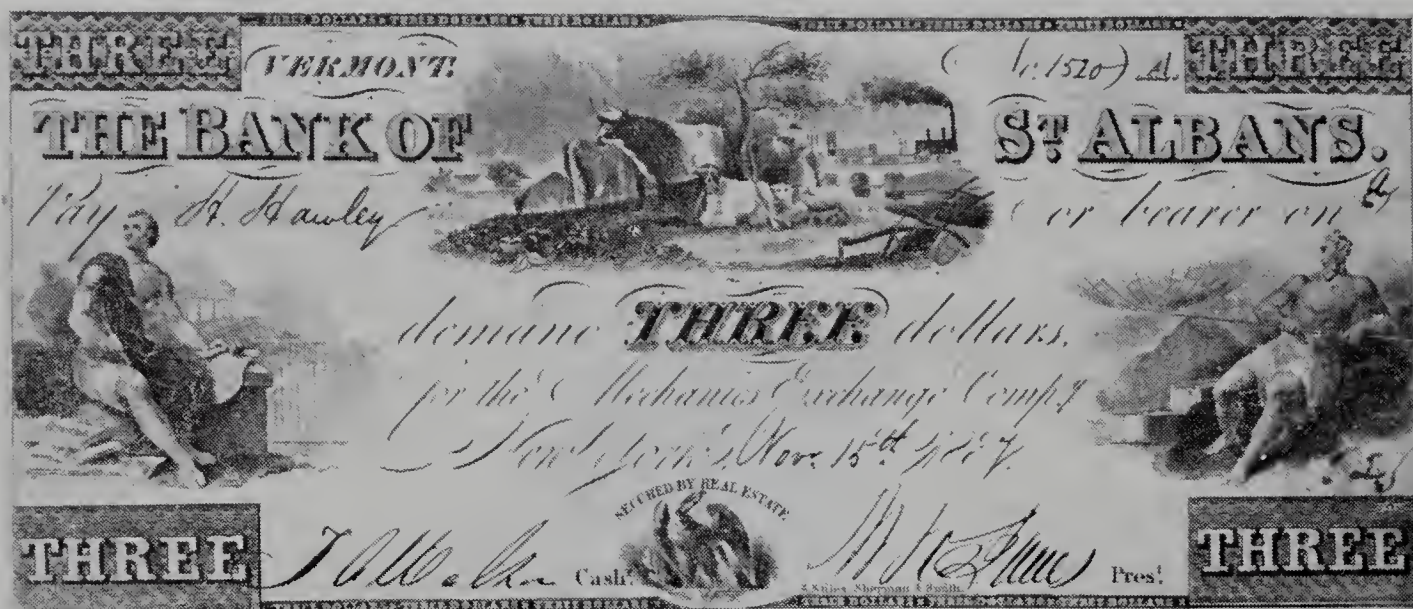 THREE DOLLARS THREE DOLLARS THREE DOLLARS THREE DOLLARS THREE DOLLARS THREE DOLLARS
THREE VERMONT. No. 1520) A. THREE
THE BANK OF ST ALBANS.
Pay H. Hawley or bearer on
demand THREE dollars,
for the Mechanics Exchange Compy
New York, Nov. 15th
SECURED BY REAL ESTATE
THREE Cash! Pres! THREE
Stiles, Sherman & Smith